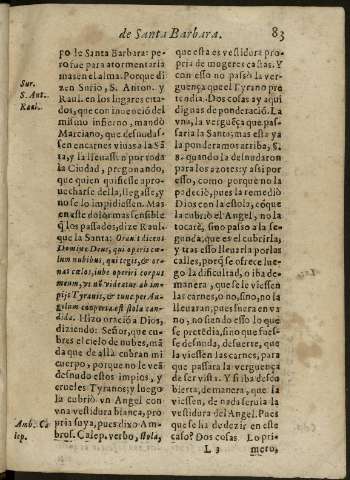 de Santa Barbara. 83
po de Santa Barbara: pe-
ro fue para atormentarla
mas en el alma. Porque di
zen Surio, S. Anton. y
Raul. en los lugares cita-
dos, que con inuenció del
mismo infierno, mandò
Marciano, que desnudas-
sen en carnes viuas a la Sā
ta, y la lleuassẽ n por toda
la Ciudad, pregonando,
que quien quisiesse apro-
uecharse della, llegasse, y
no se lo impidiessen. Mas
en este dolor mas sensible
q̃ los passados, dize Raul.
que la Santa: Orauit dicens
Domine Deus, qui operis cæ-
lum nubibus, qui tegis, & or-
nas cælos, iube operiri corpus
meum, vt nō videatur ab im-
pijs Tyranis, & tunc per An-
gelum cooperta est stola can-
dida. Hizo oració a Dios,
diziendo: Señor, que cu-
bres el cielo de nubes, mā
da que de allà cubran mi
cuerpo, porque no le veā
desnudo estos impios, y
crueles Tyranos: y luego
la cubriò vn Angel con
vna vestidura bianca, pro
pria suya, pues dixo Am-
bros. Calep. verbo, stola,
Sur.
S. Ant.
Raul.
Amb. Ca
lep.
que esta es vestidura pro-
pria de mugeres castas. Y
con esso no passò la ver-
guença que el Tyrano pre
tendia. Dos cosas ay aqui
dignas de ponderació. La
vna, la verguēça que pas-
saria la Santa; mas esta ya
la ponderamos arriba, §.
8. quando la desnudaron
para los açotes: y assi por
esso, como porque no la
padeciò, pues la remediò
Dios con la estola, cō que
la cubriò el Angel, no la
tocarè, sino passo a la se-
gunda, que es el cubrirla,
y tras esso lleuarla por las
calles, porq̃ se ofrece lue-
go la dificultad, o iba de-
manera, que se le viessen
las carnes, o no, sino, no la
lleuaran, pues fuera en va
no, no siendo esso lo que
se pretēdia, sino que fues-
se desnuda, desuerte, que
la viessen las carnes, para
que passara la verguença
de ser vista. Y si iba descu
bierta, demanera, que la
viessen, de nada seruia la
vestidura del Angel. Pues
que se ha de dezir en este
caso? Dos cosas. Lo pri-
L 3 mero,